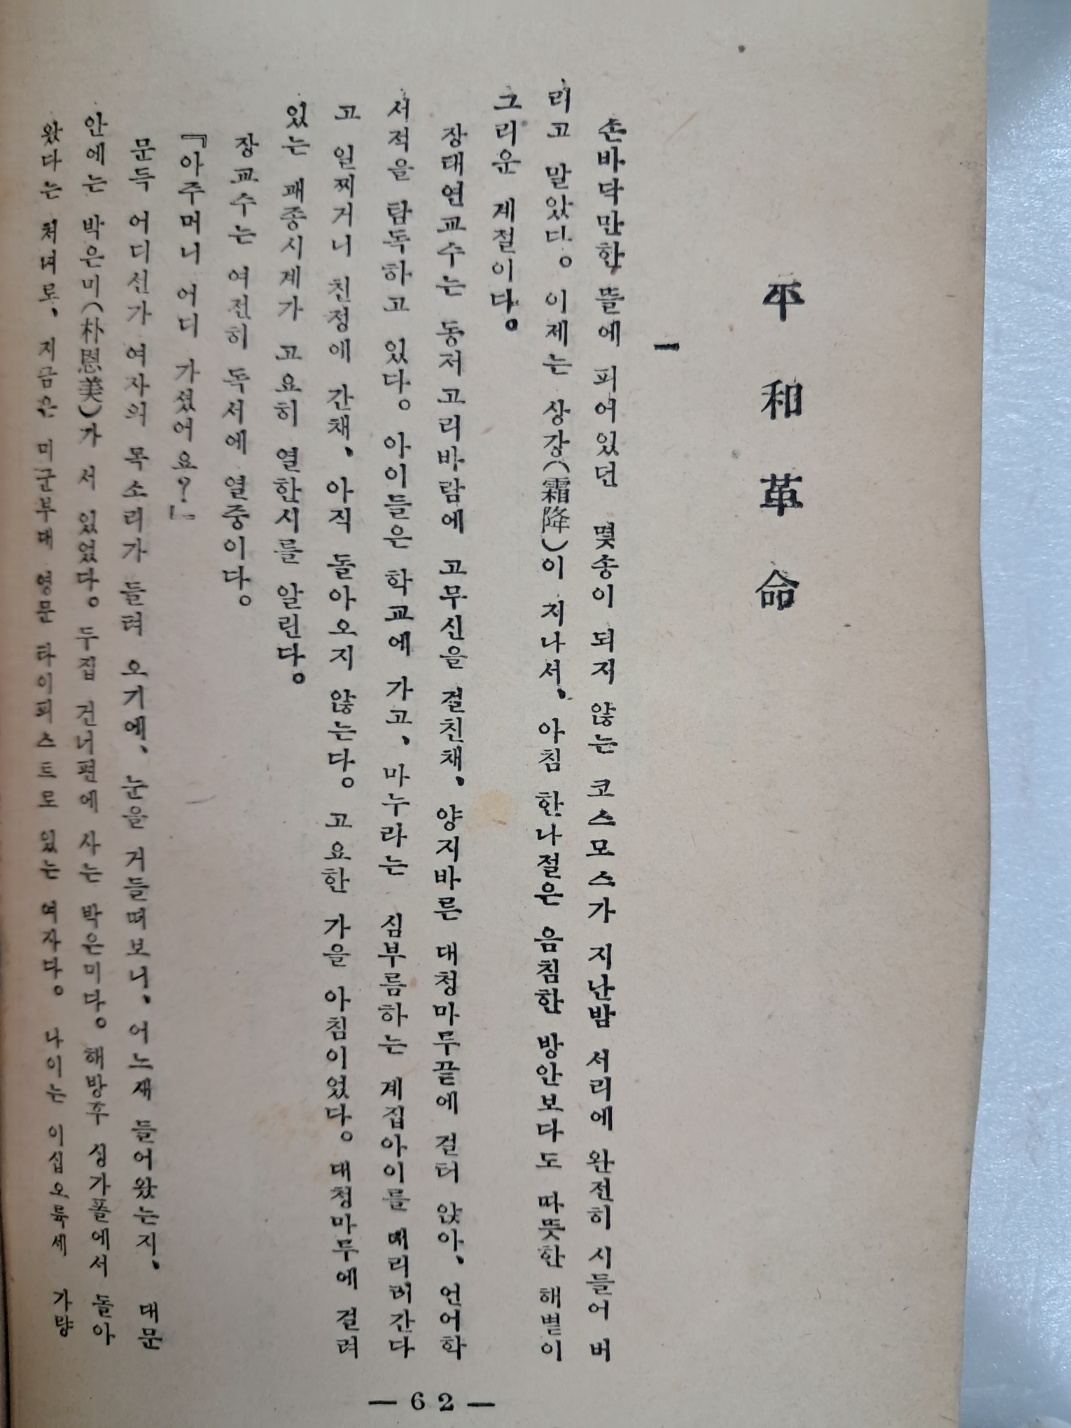 平和革命
一
손바닥만한 뜰에 피어있던 몇송이 되지 않는 코스모스가 지난밤 서리에 완전히 시들어 버
리고 말았다。 이제는 상강(霜降)이 지나서、 아침 한나절은 음침한 방안보다도 따뜻한 해볕이
그리운 계절이다。
장태연교수는 동저고리바람에 고무신을 걸친채、 양지바른 대청마루끝에 걸터 앉아、 언어학
서적을 탐독하고 있다。 아이들은 학교에 가고、 마누라는 심부름하는 계집아이를 때리려간다
고 일찌거니 친정에 간채、 아직 돌아오지 않는다。 고요한 가을 아침이었다。 대청마루에 걸려
있는 괘종시계가 고요히 열한시를 알린다。
장교수는 여전히 독서에 열중이다。
『아주머니 어디 가셨어요?』
문득 어디선가 여자의 목소리가 들려 오기에、 눈을 거들떠보니、 어느새 들어왔는지、 대문
안에는 박은미(朴恩美)가 서 있었다。 두집 건너편에 사는 박은미다。 해방후 싱가폴에서 돌아
왔다는 처녀로、 지금은 미군부대 영문 타이피스트로 있는 여자다。 나이는 이십오륙세 가량
— 62 —